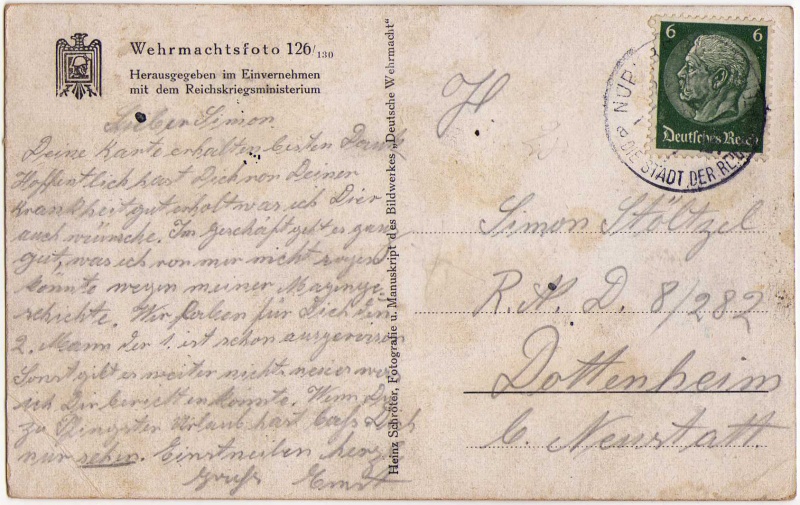 Wehrmachtsfoto 126/130
Herausgegeben im Einvernehmen
mit dem Reichskriegsministerium
Lieber Simon
Deine Karte erhalten besten Dank
Hoffentlich hast Dich von Deiner
Krankheit gut erholt was ich Dier
auch wünsche. Im Geschäft geht es ganz
gut, was ich von mir nicht sagen
könnte wegen meiner Magenge-
schichte. Wir haben für Dich den
2. Mann der 1. ist schon ausgerissen
Sonst gibt es weiter nichts neues was
ich Dir berichten könnte. Wenn Du
zu Pfingsten Urlaub hast lass Dich
nur sehen. Einstweilen herz.
Gruß Ernst
Heinz Schröter, Fotografie u. Manuskript des Bildwerkes „Deutsche Wehrmacht“
6 6
Deutsches Reich
NÜR
a DIE STADT DER REI
H
Simon Stöltzel
R. A. D. 8/282
Dottenheim
b. Neustatt.